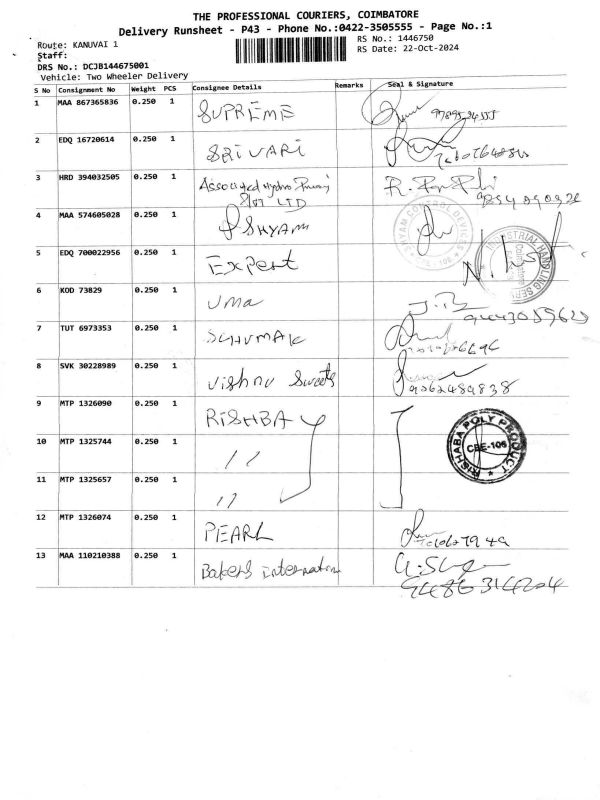 THE PROFESSIONAL COURIERS, COIMBATORE
Delivery Runsheet - P43 - Phone No.:0422-3505555 - Page No.:1
Route: KANUVAI 1 RS No.: 1446750
Staff: RS Date: 22-Oct-2024
DRS No.: DCJB144675001
Vehicle: Two Wheeler Delivery
S No Consignment No Weight PCS Consignee Details Remarks Seal & Signature
1 MAA 867365836 0.250 1 SUPREME
2 EDQ 16720614 0.250 1 SRIVARI
3 HRD 394032505 0.250 1 Associated Hydro
LTD
4 MAA 574605028 0.250 1 SHYAM
SHYAM CONTROL DEVICES
5 EDQ 700022956 0.250 1 Expert
INDUSTRIAL HANDLING
6 KOD 73829 0.250 1 uma
7 TUT 6973353 0.250 1 SCHUMAK
8 SVK 30228989 0.250 1 Vishnu Sweets
9362489838
9 MTP 1326090 0.250 1 RISHBA
RISHABA POLY PRODUCT
CBE-106
10 MTP 1325744 0.250 1 11
11 MTP 1325657 0.250 1 11
12 MTP 1326074 0.250 1 PEARL
13 MAA 110210388 0.250 1 Bakers Internation
9486314204